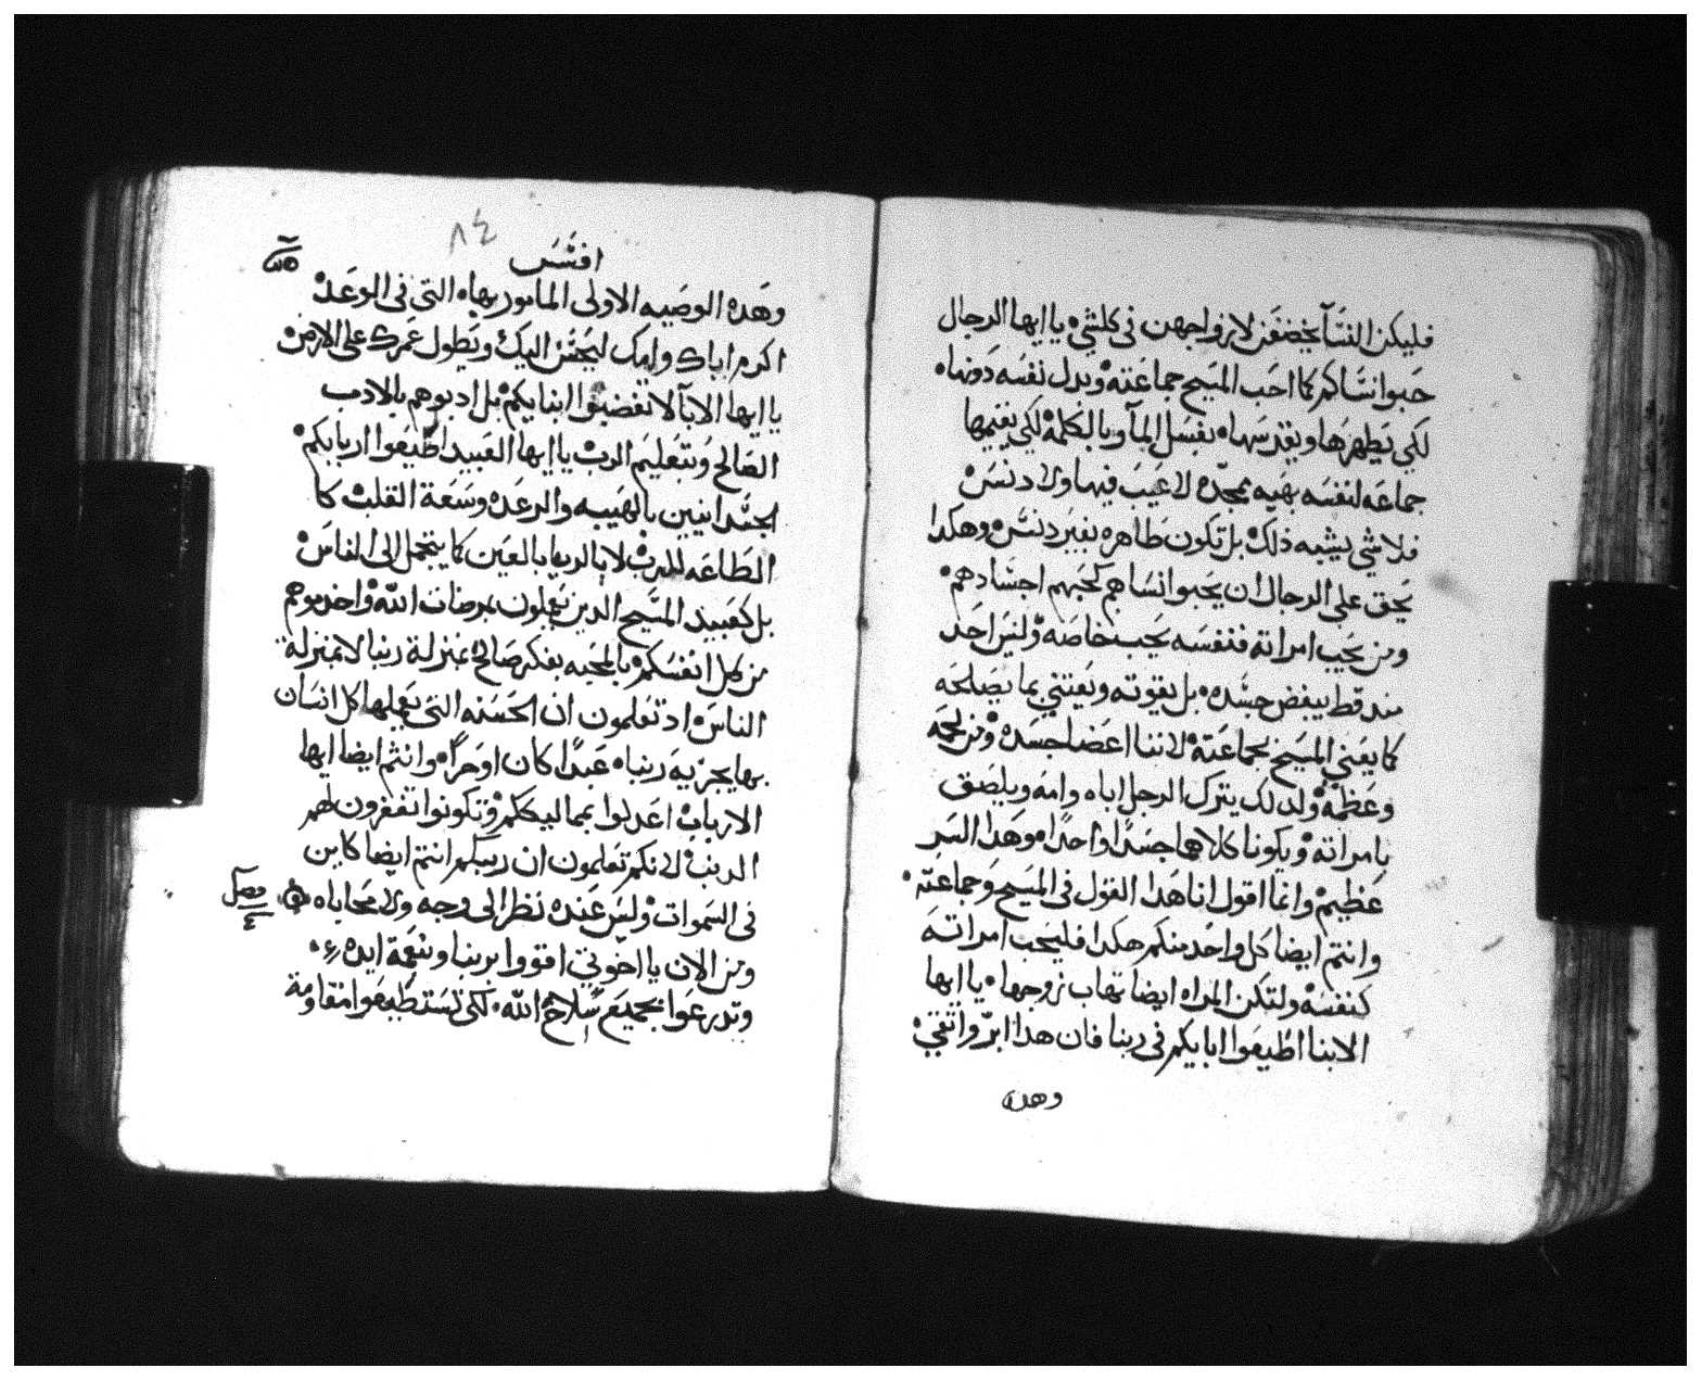 فليكن النسآ يخضعن لازواجهن فى كلشي يا ايها الرجال
حبوا نسّاكم كما احب المسيح جماعته وبدل نفسه دونها
لكي يطهرها ويقدسها بغسل المآ وبالكلمة لكي يقيمها
جماعه لنفسه بهيه بمجده لا عيب فيها ولا دنس
فلا شي يشبه ذلك بل تكون طاهره بغير دنس وهكدا
يحق على الرجال ان يحبوا نساهم كحبهم اجسادهم
ومن يحب امراته فنفسه يحب خاصه وليس احد
مند قط يبغض جسده بل يقوته ويعتني بما يصلحه
كما يعني المسيح بجماعته لاننا اعضا جسده ومن لحمه
وعظمه ولدلك يترك الرجل اباه وامه ويلصق
بامراته ويكونا كلاهما جسدا واحدا وهدا السر
عظيم وانما اقول انا هدا القول فى المسيح وجماعته
وانتم ايضا كل واحد منكم هكدا فليحب امراته
كنفسه ولتكن المراه ايضا تهاب زوجها يا ايها
الابنا اطيعوا ابايكم فى ربنا فان هدا ابر واتقي
وهده
٨٤
افسس
وهده الوصيه الاولى المامور بها التى فى الوعد
اكرم اباك وامك ليحسن اليك ويطول عمرك على الارض
يا ايها الابآ لا تغضبوا ابنايكم بل ادبوهم بالادب
الصالح وبتعليم الرب يا ايها العبيد اطيعوا اربابكم
الجسدانيين بالهيبه والرعده وسعة القلب كا
الطاعه للرب لا بالريا بالعين كما يتجمل الى الناس
بل كعبيد المسيح الدين يعملون بمرضات الله واخدموهم
من كل انفسكم بالمحبه بفكر صالح بمنزلة ربنا لا بمنزلة
الناس اد تعلمون ان الحسنه التى يعملها كل انسان
بها يجزيه ربنا عبدا كان او حرا وانتم ايضا ايها
الارباب اعدلوا بمماليككم وتكونوا تغفرون لهم
الدنب لانكم تعلمون ان ربكم انتم ايضا كاين
فى السموات وليس عنده نظر الى وجه ولا محاباه
فصل
٤
ومن الان يا اخوتي اقووا بربنا وبنعمة ايده
وتدرعوا بجميع سلاح الله لكى تستطيعوا مقاومة